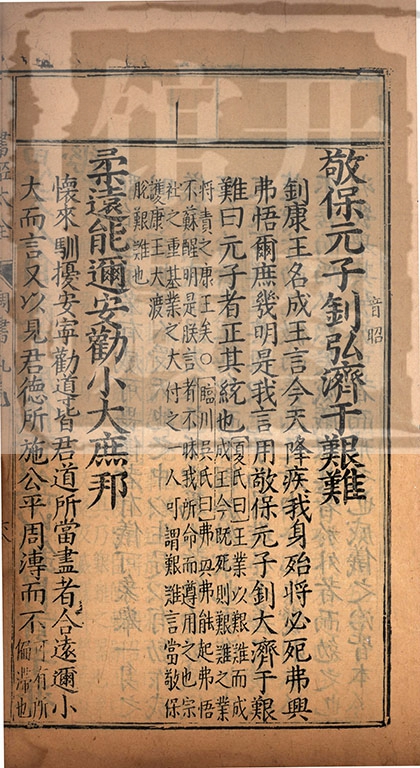 敬保元子釗弘濟于艱難
音昭
釗康王名成王言今天降疾我身殆將必死弗興
弗悟爾庶幾明是我言用敬保元子釗大濟于艱
難曰元子者正其統也
夏氏曰王業以艱難而成
成王今既死則艱難之業
將責之康王矣○臨川吳氏曰弗興弗能起弗悟
不蘇醒明是朕言者不昧我所命而尊用之也宗
社之重基業之大付之一人可謂艱難言當敬保
護康王大渡
脫艱難也
柔遠能邇安勸小大庶邦
懷來馴擾安寧勸導皆君道所當盡者合遠邇小
大而言又以見君德所施公平周溥而不
可有所
偏滯也